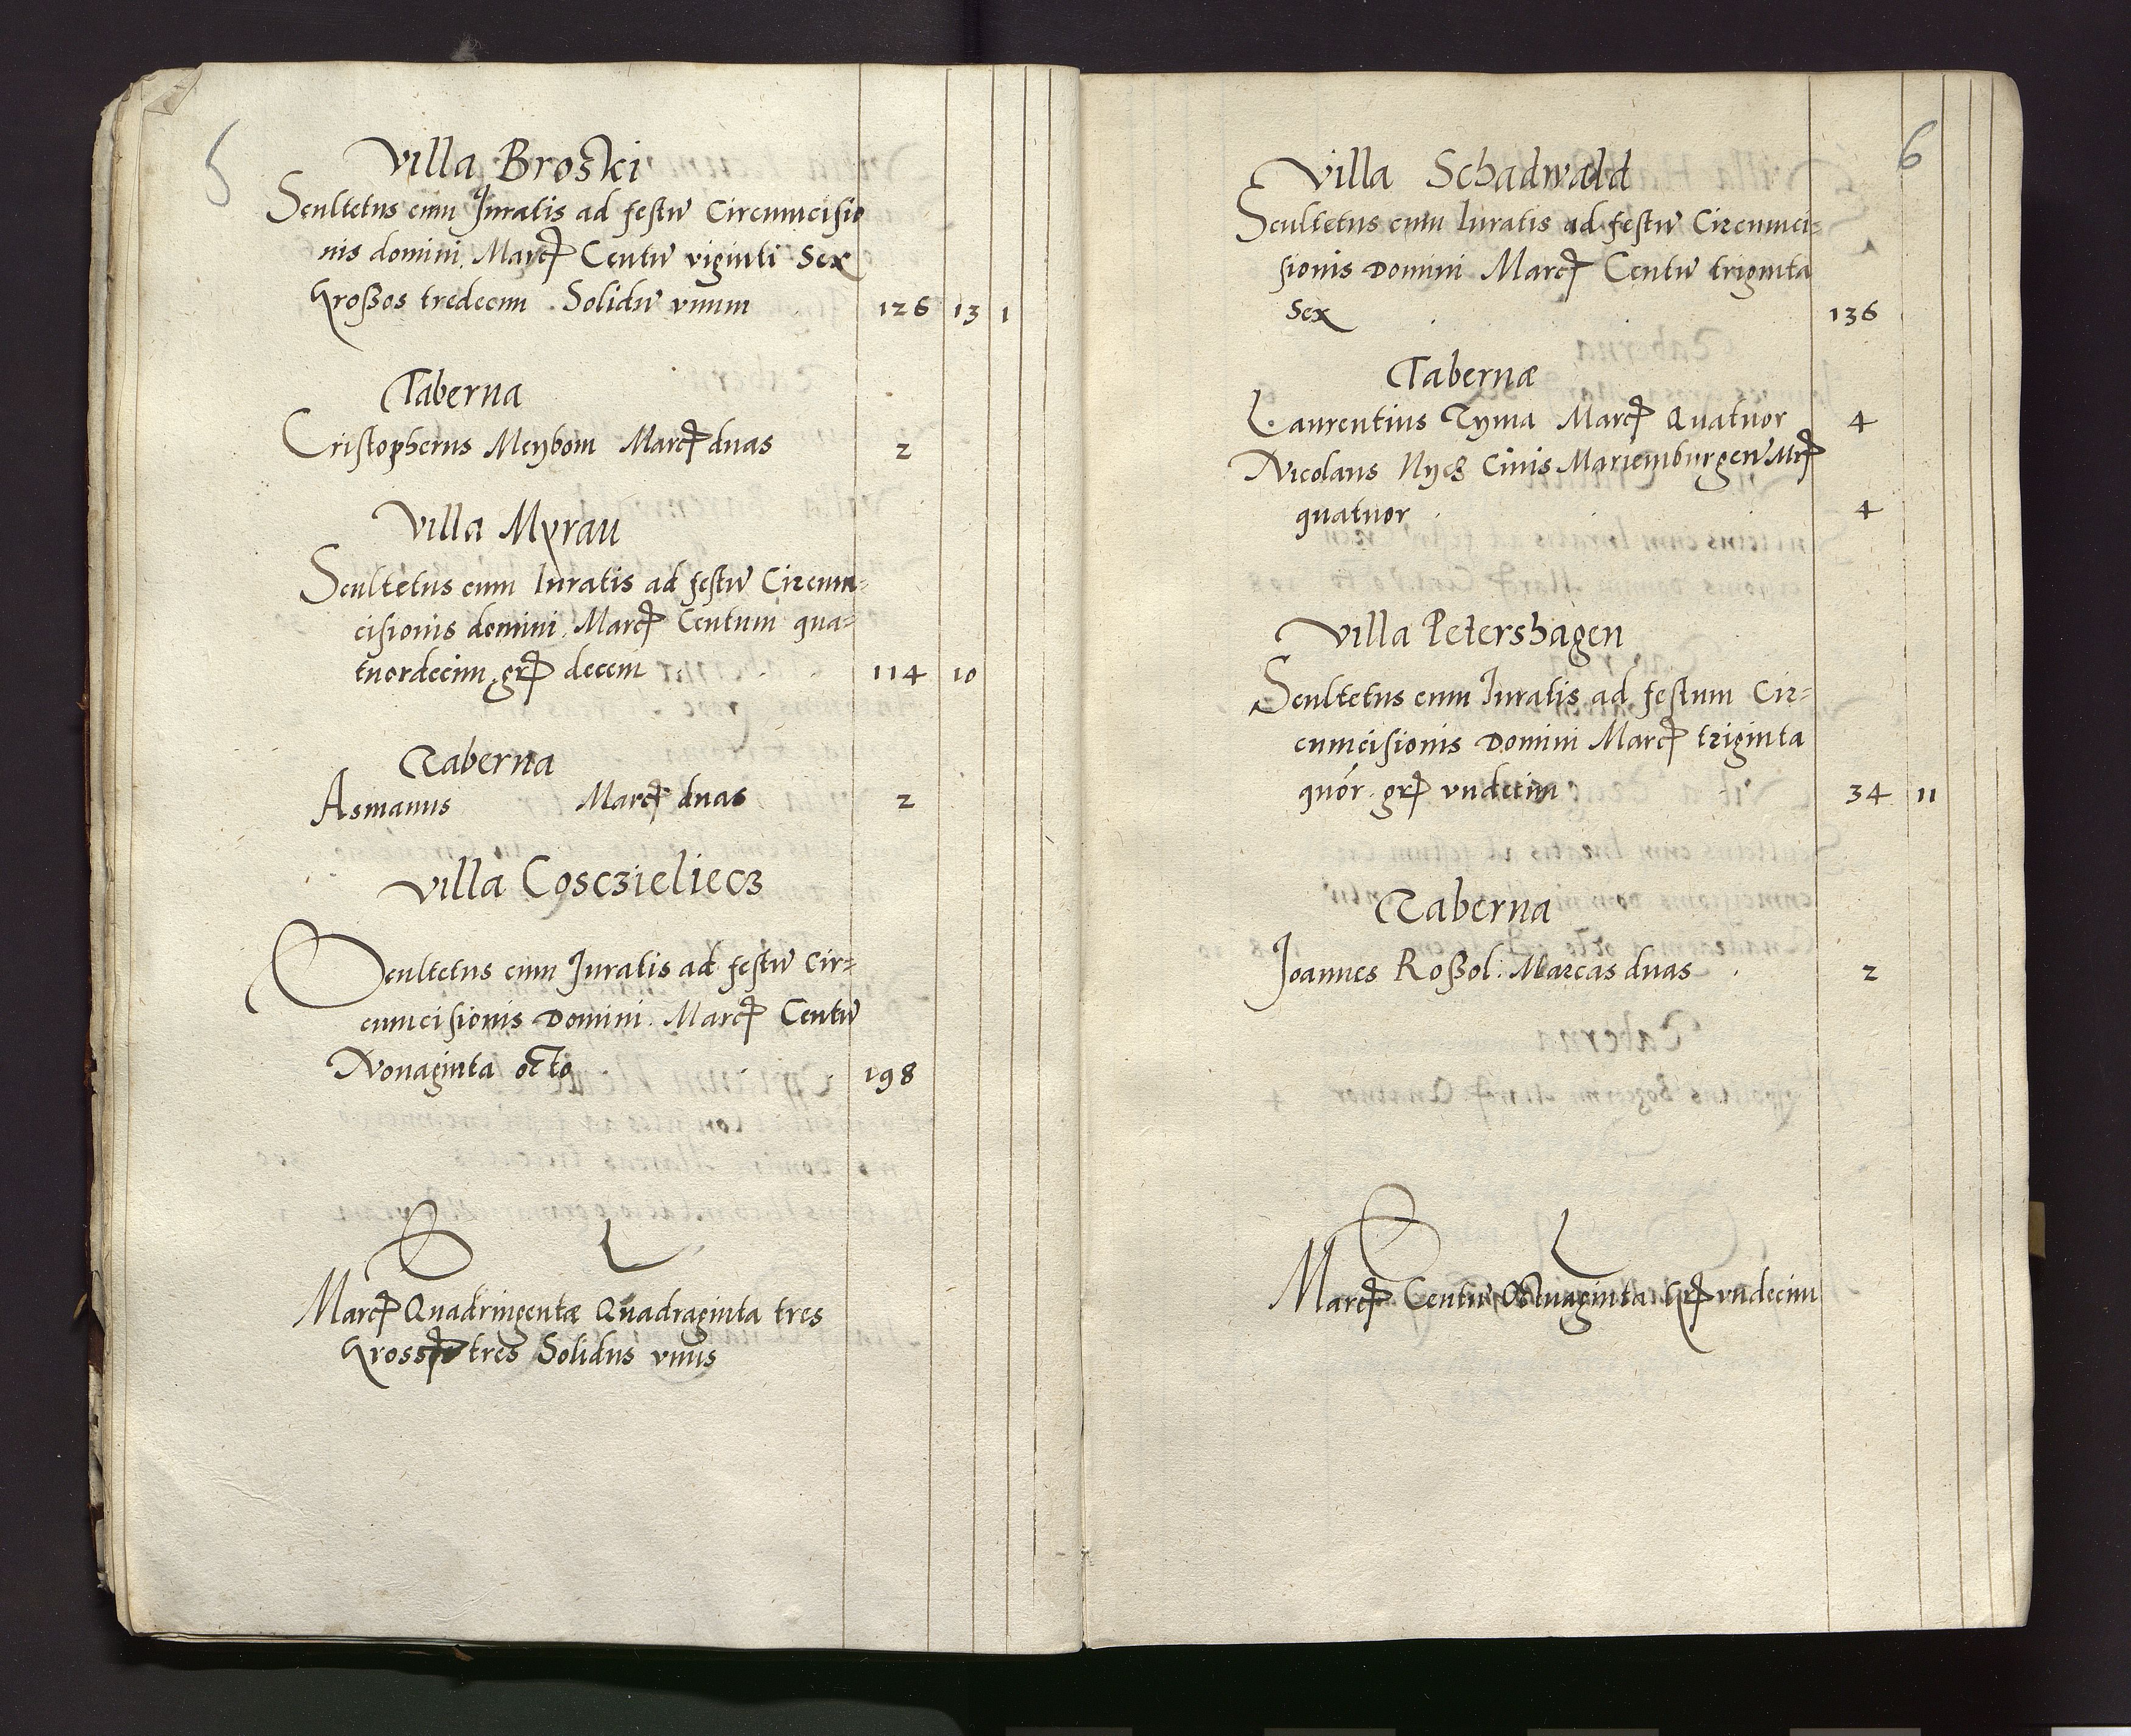 5
Villa Broski
Scultetus cum Juratis ad festū Circumcisio
nis domini. Marcꝭ Centū viginti Sex
Großos tredecim . Solidū vnum 126 13 1
Taberna
Cristopherus Meybom Marcꝭ duas 2
Villa Myrau
Scultetus cum Iuratis ad festū Circum=
cisionis domini. Marcꝭ Centum qua=
tuordecim grꝭ decem 114 10
Taberna
Asmanus Marcꝭ duas 2
Villa Cosczieliecz
Scultetus cum Juratis ad festū Cir=
cumcisionis Domini. Marcꝭ Centū
Nonaginta octo 198
Marcꝭ Quadringentæ Quadraginta tres
Grossꝭ tres Solidus vnus
6
Villa Schadwald
Scultetus cum Iuratis ad festū Circumci=
sionis Domini Marcꝭ Centū triginta
Sex 136
Tabernæ
Laurentius Tyma Marcꝭ Quatuor 4
Nicolaus Nycz Ciuis Mariemburgeñ Mrꝭ
quatuor 4
Villa Petershagen
Scultetus cum Juratis ad festum Cir=
cumcisionis Domini Marcꝭ triginta
quór. grꝭ vndecim 34 11
Taberna
Joannes Roßol: Marcas duas 2
Marcꝭ Centū Grꝭ vndecim